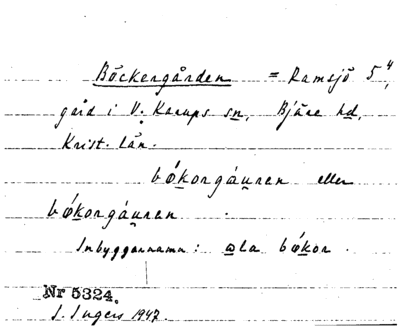 Böckergården = Ramsjö 5⁴,
gård i V. Karups sn, Bjäre hd,
Krist. län.
bókorgáu̯ren eller
bókorgáu̯ren .
Inbyggarnamn: ola bókor .
Nr 5324.
I. Ingers 1947.